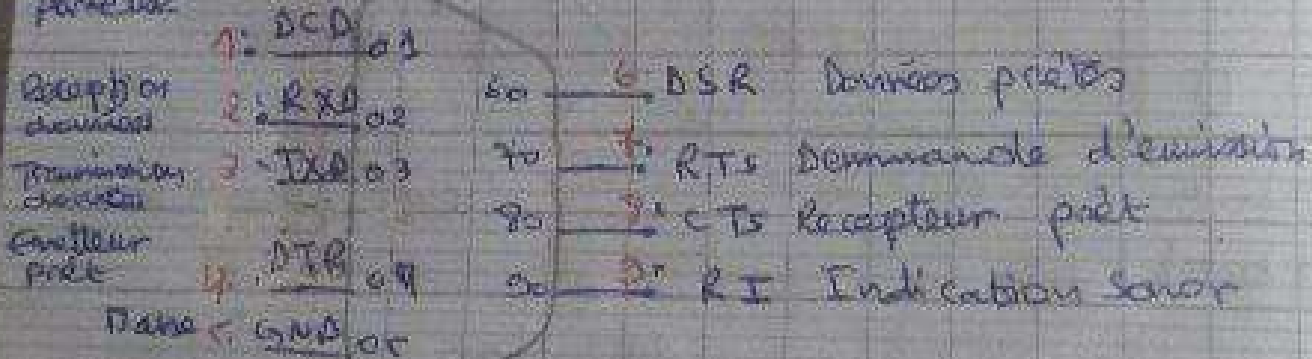 porteuse
1: DCD 01
Reception données
2: RXD 02
Transmission données
3: TXD 03
Emetteur prêt
4: DTR 04
Masse 5: GND 05
60 6 DSR Données prêtes
70 7 RTS Demmande d'émission
80 8 CTS Recepteur prêt
90 9 RI Indication Sonor